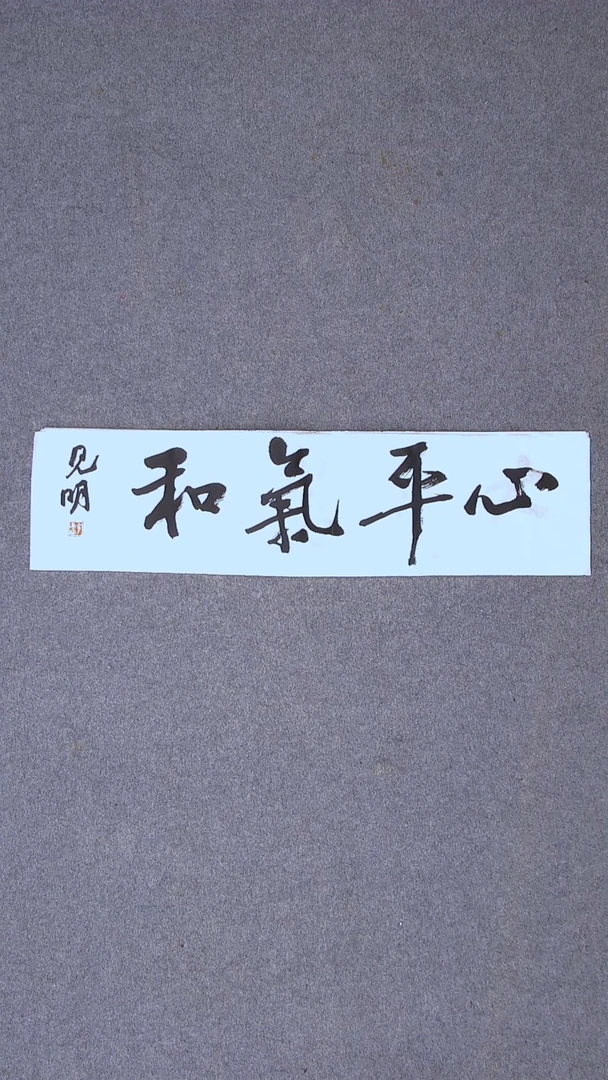 心平氣和
见明